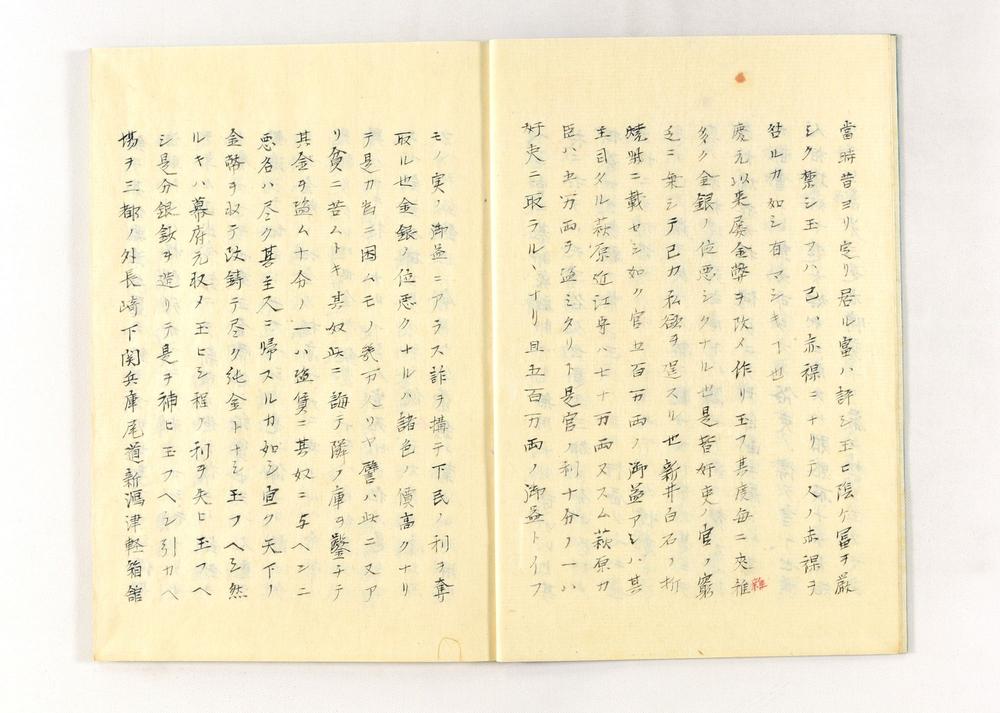 當時昔ヨリ定リ居ル富ハ許シ玉ヒ陰ケ冨ヲ嚴
シク禁シ玉フハ己ハ赤裸ニナリ戸人ノ赤裸ヲ
咎ルカ如シ有マシキヿ也
慶元以来屡金幣ヲ改メ作リ玉フ其度毎ニ夾雑
雜
多ク金銀ノ位悪シクナル也是皆奸吏ノ官ノ窮
乏ニ乗シテ己カ私欲ヲ逞スル也新井白石ノ折
焼㭰ニ載セシ如ク官五百万両ノ御益アレハ其
主目タル萩原近江守ハ七十万両又スム萩原カ
臣ハ廿万両ヲ盗シタリト是官ノ利十分ノ一ハ
奸吏ニ取ラルヽナリ且五百万両ノ御益トイフ
モノ実ノ御益ニアラス詐ヲ搆テ下民ノ利ヲ奪
取ル也金銀ノ位悪クナルハ諸色ノ價高クナリ
テ是カ為ニ困ムモノ幾万人ソヤ譬ハ此ニ又ア
リ貧ニ苦ムトキ其奴此ニ誨テ隣ノ庫ヲ鑿チテ
其金ヲ盗ム十分ノ一ハ盗賃ニ其奴ニ与ヘンニ
悪名ハ尽ク其主人ニ帰スルカ如シ宜ク天下ノ
金幣ヲ収テ改鋳テ尽ク純金トナシ玉フヘシ然
ルキハ幕府元収メ玉ヒシ程ノ利ヲ失ヒ玉フヘ
シ是分銀鈔ヲ造リテ是ヲ補ヒ玉フヘシ引カヘ
場ヲ三都ノ外長崎下関兵庫尾道新潟津軽箱舘